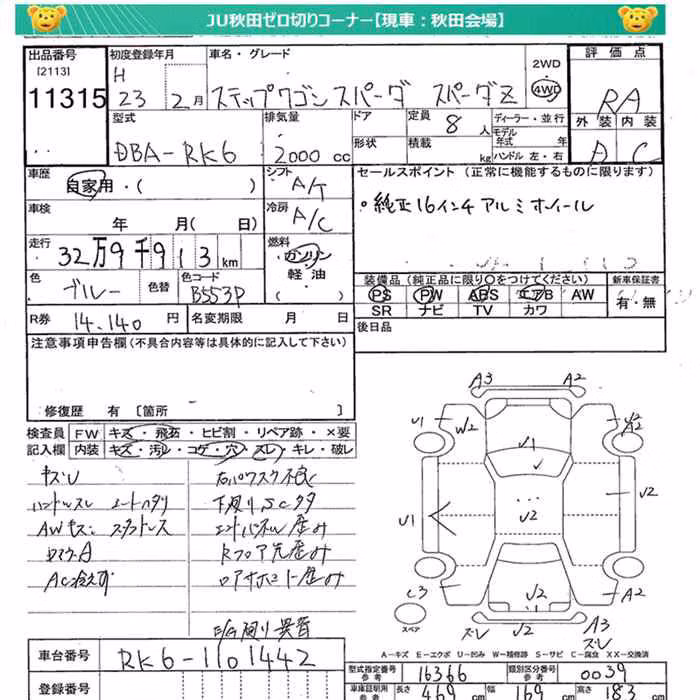 JU秋田ゼロ切りコーナー【現車：秋田会場】
出品番号 初度登録年月 車名・グレード 2WD 評価点
[2113] H 4WD
11315 23 2月 ステップワゴン スパーダ スパーダZ RA
型式 排気量 ドア 定員 ディーラー・並行 外装 内装
モデル
8人 年式 年
DBA-RK6 2000 cc 形状 積載 kg ハンドル 左・右 A C
車歴 シフト セールスポイント（正常に機能するものに限ります）
自家用・( ) A/T 。純正16インチアルミホイール
車検 冷房
年 月( 日) A/C
走行 燃料
32万9千913km ガソリン
軽油
色 色替 色コード ( ) 装備品（純正品に限り○をつけてください） 新車保証書
ブルー B553P PS PW ABS エアB AW 有・無
SR ナビ TV カワ
R券 14,140円 名変期限 月 日 後日品
注意事項申告欄(不具合内容等は具体的に記入して下さい)
修復歴 有 [箇所 ]
検査員 FW キズ・飛石・ヒビ割・リペア跡・×要
記入欄 内装 キズ・汚レ・コゲ・穴・スレ・キレ・破レ
キズU 右パワスラ不良
ハンドルスレ シートヘタリ 下廻りSCタタ
AWキズ スタッドレス エンドパネル歪み
Rフロア先歪み
AC冷えず ロアサポート歪み
E/G廻り異音
A3 A2
U1 W2 A2 W2
U1
U1 U2 U2
C3 U2 U2 A2
スペア ズレ A3
ズレ
A－キズ E－エクボ U－凹み W－補修跡 S－サビ C－腐食 XX－交換済
車台番号 RK6-1101442
登録番号
型式指定番号 参考 16366 類別区分番号 参考 0039
車庫証明用 参考 長さ 469 cm 幅 169 cm 高さ 183 cm